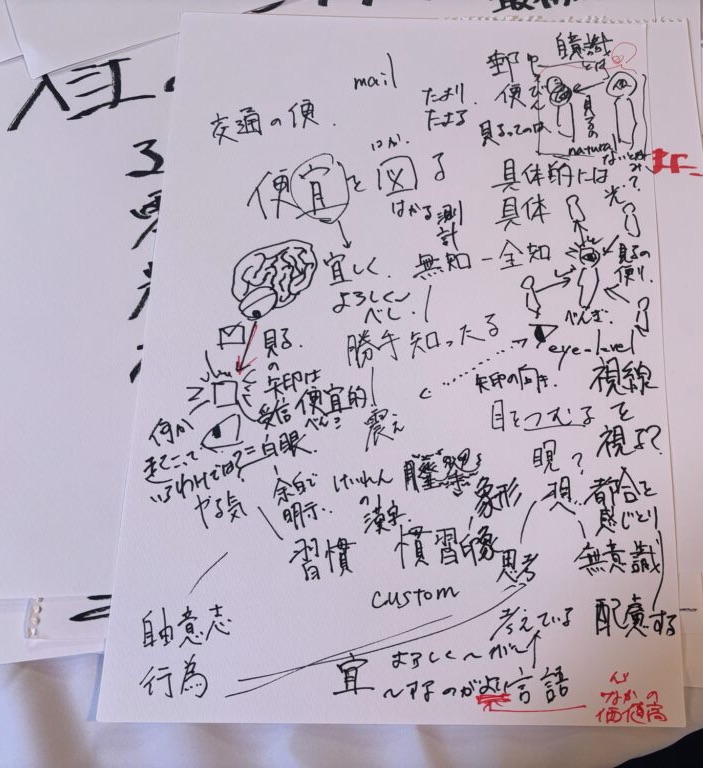 mail
郵
便
交通の便.
たより
たまる
見るっての中
見る
natural
はか.
便宜を図る
はかる 測
計
具体的には
具体
光.
宜しく.
よろしく〜
べし.
無知 - 全知
見るの
便り.
べんぎ.
勝手知ったる
eye-level
見る.
の
矢印は
受信
便宜的
べんぎ
矢印の向き.
視線
を
視る?
目をつむる
震え
何か
起こって
いるわけでは?
= 白眼.
やる気
余白で
明示.
けいれん
の
漢字.
象形
都合を
感じとり
習慣
慣習
custom
思考
無意識
自由意志
行為
考えている
配慮する
宜
よろしく〜が
〜するのがよい
言語
なかの
価値高